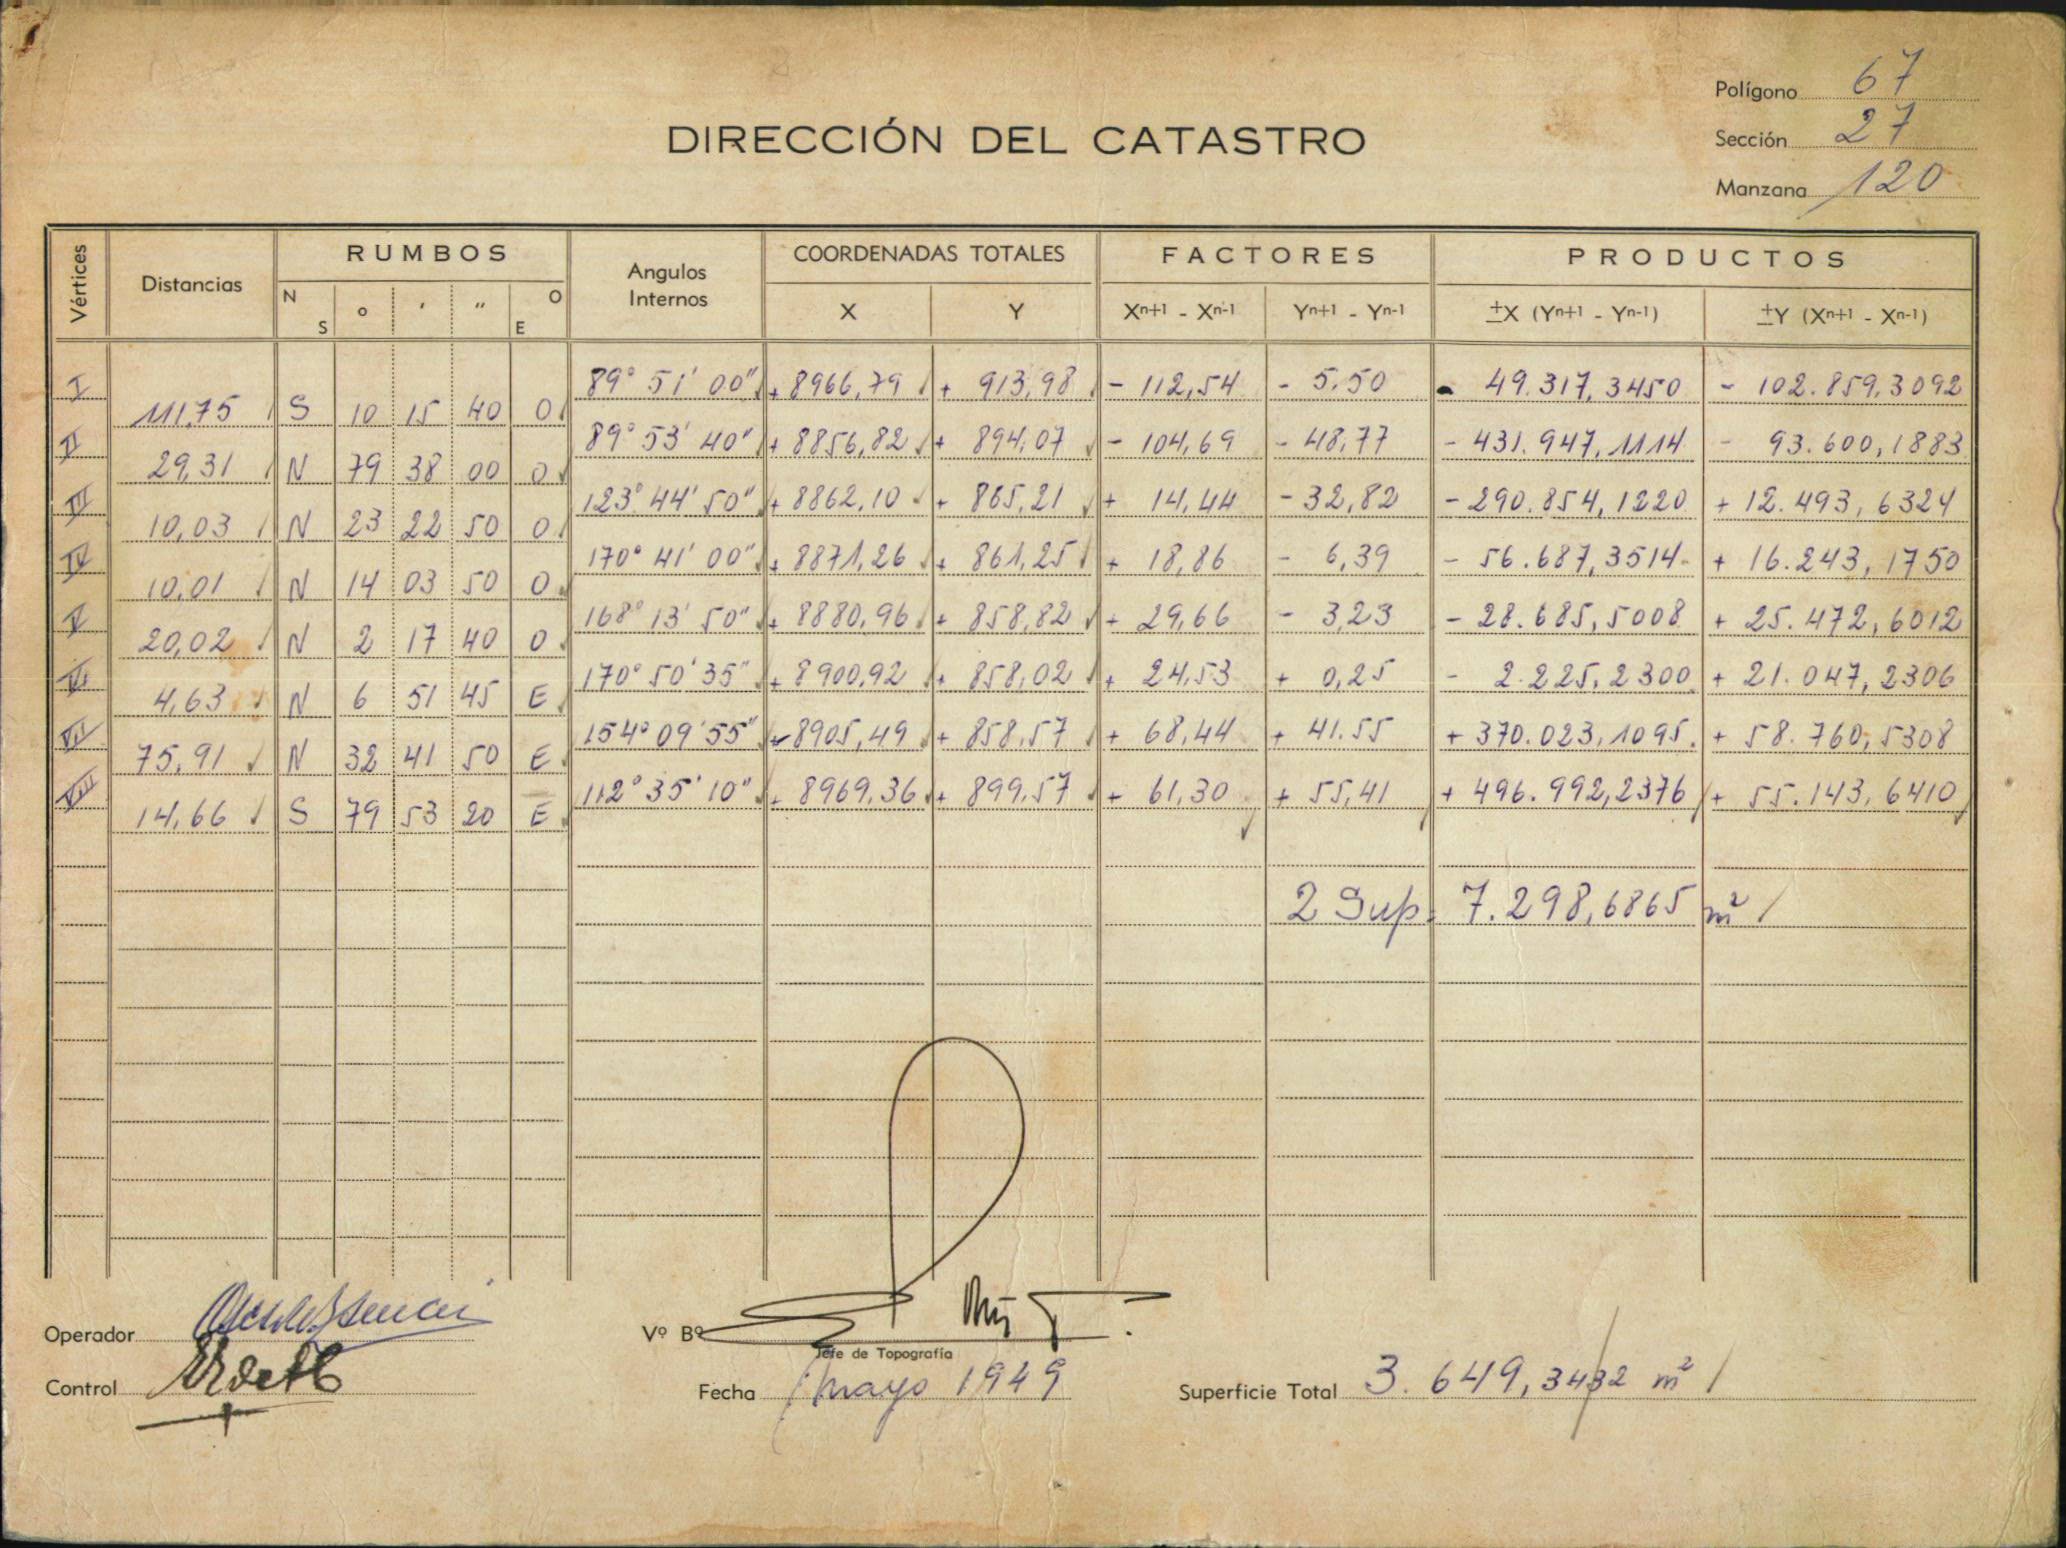 Polígono 67
DIRECCIÓN DEL CATASTRO
Sección 27
Manzana 120
Vértices Distancias RUMBOS Angulos Internos COORDENADAS TOTALES FACTORES PRODUCTOS
N S ° ′ ″ O E X Y Xn+1 - Xn-1 Yn+1 - Yn-1 ±X (Yn+1 - Yn-1) ±Y (Xn+1 - Xn-1)
I 89° 51' 00" + 8966,79 + 913,98 - 112,54 - 5.50 - 49.317,3450 - 102.859,3092
111,75 S 10 15 40 O
II 89° 53' 40" + 8856,82 + 894,07 - 104,69 - 48,77 - 431.947,1114 - 93.600,1883
29,31 N 79 38 00 O
III 123° 44' 50" + 8862,10 + 865,21 + 14,44 - 32,82 - 290.854,1220 + 12.493,6324
10,03 N 23 22 50 O
IV 170° 41' 00" + 8871,26 + 861,25 + 18,86 - 6,39 - 56.687,3514 + 16.243,1750
10,01 N 14 03 50 O
V 168° 13' 50" + 8880,96 + 858,82 + 29,66 - 3,23 - 28.685,5008 + 25.472,6012
20,02 N 2 17 40 O
VI 170° 50' 35" + 8900,92 + 858,02 + 24,53 + 0,25 - 2.225,2300 + 21.047,2306
4,63 N 6 51 45 E
VII 154° 09' 55" + 8905,49 + 858,57 + 68,44 + 41.55 + 370.023,1095 + 58.760,5308
75,91 N 32 41 50 E
VIII 112° 35' 10" + 8969,36 + 899,57 + 61,30 + 55,41 + 496.992,2376 + 55.143,6410
14,66 S 79 53 20 E
2 Sup. 7.298,6865 m²
Operador
Vº Bº
Jefe de Topografía
Control
Fecha mayo 1949
Superficie Total 3.649,3432 m²